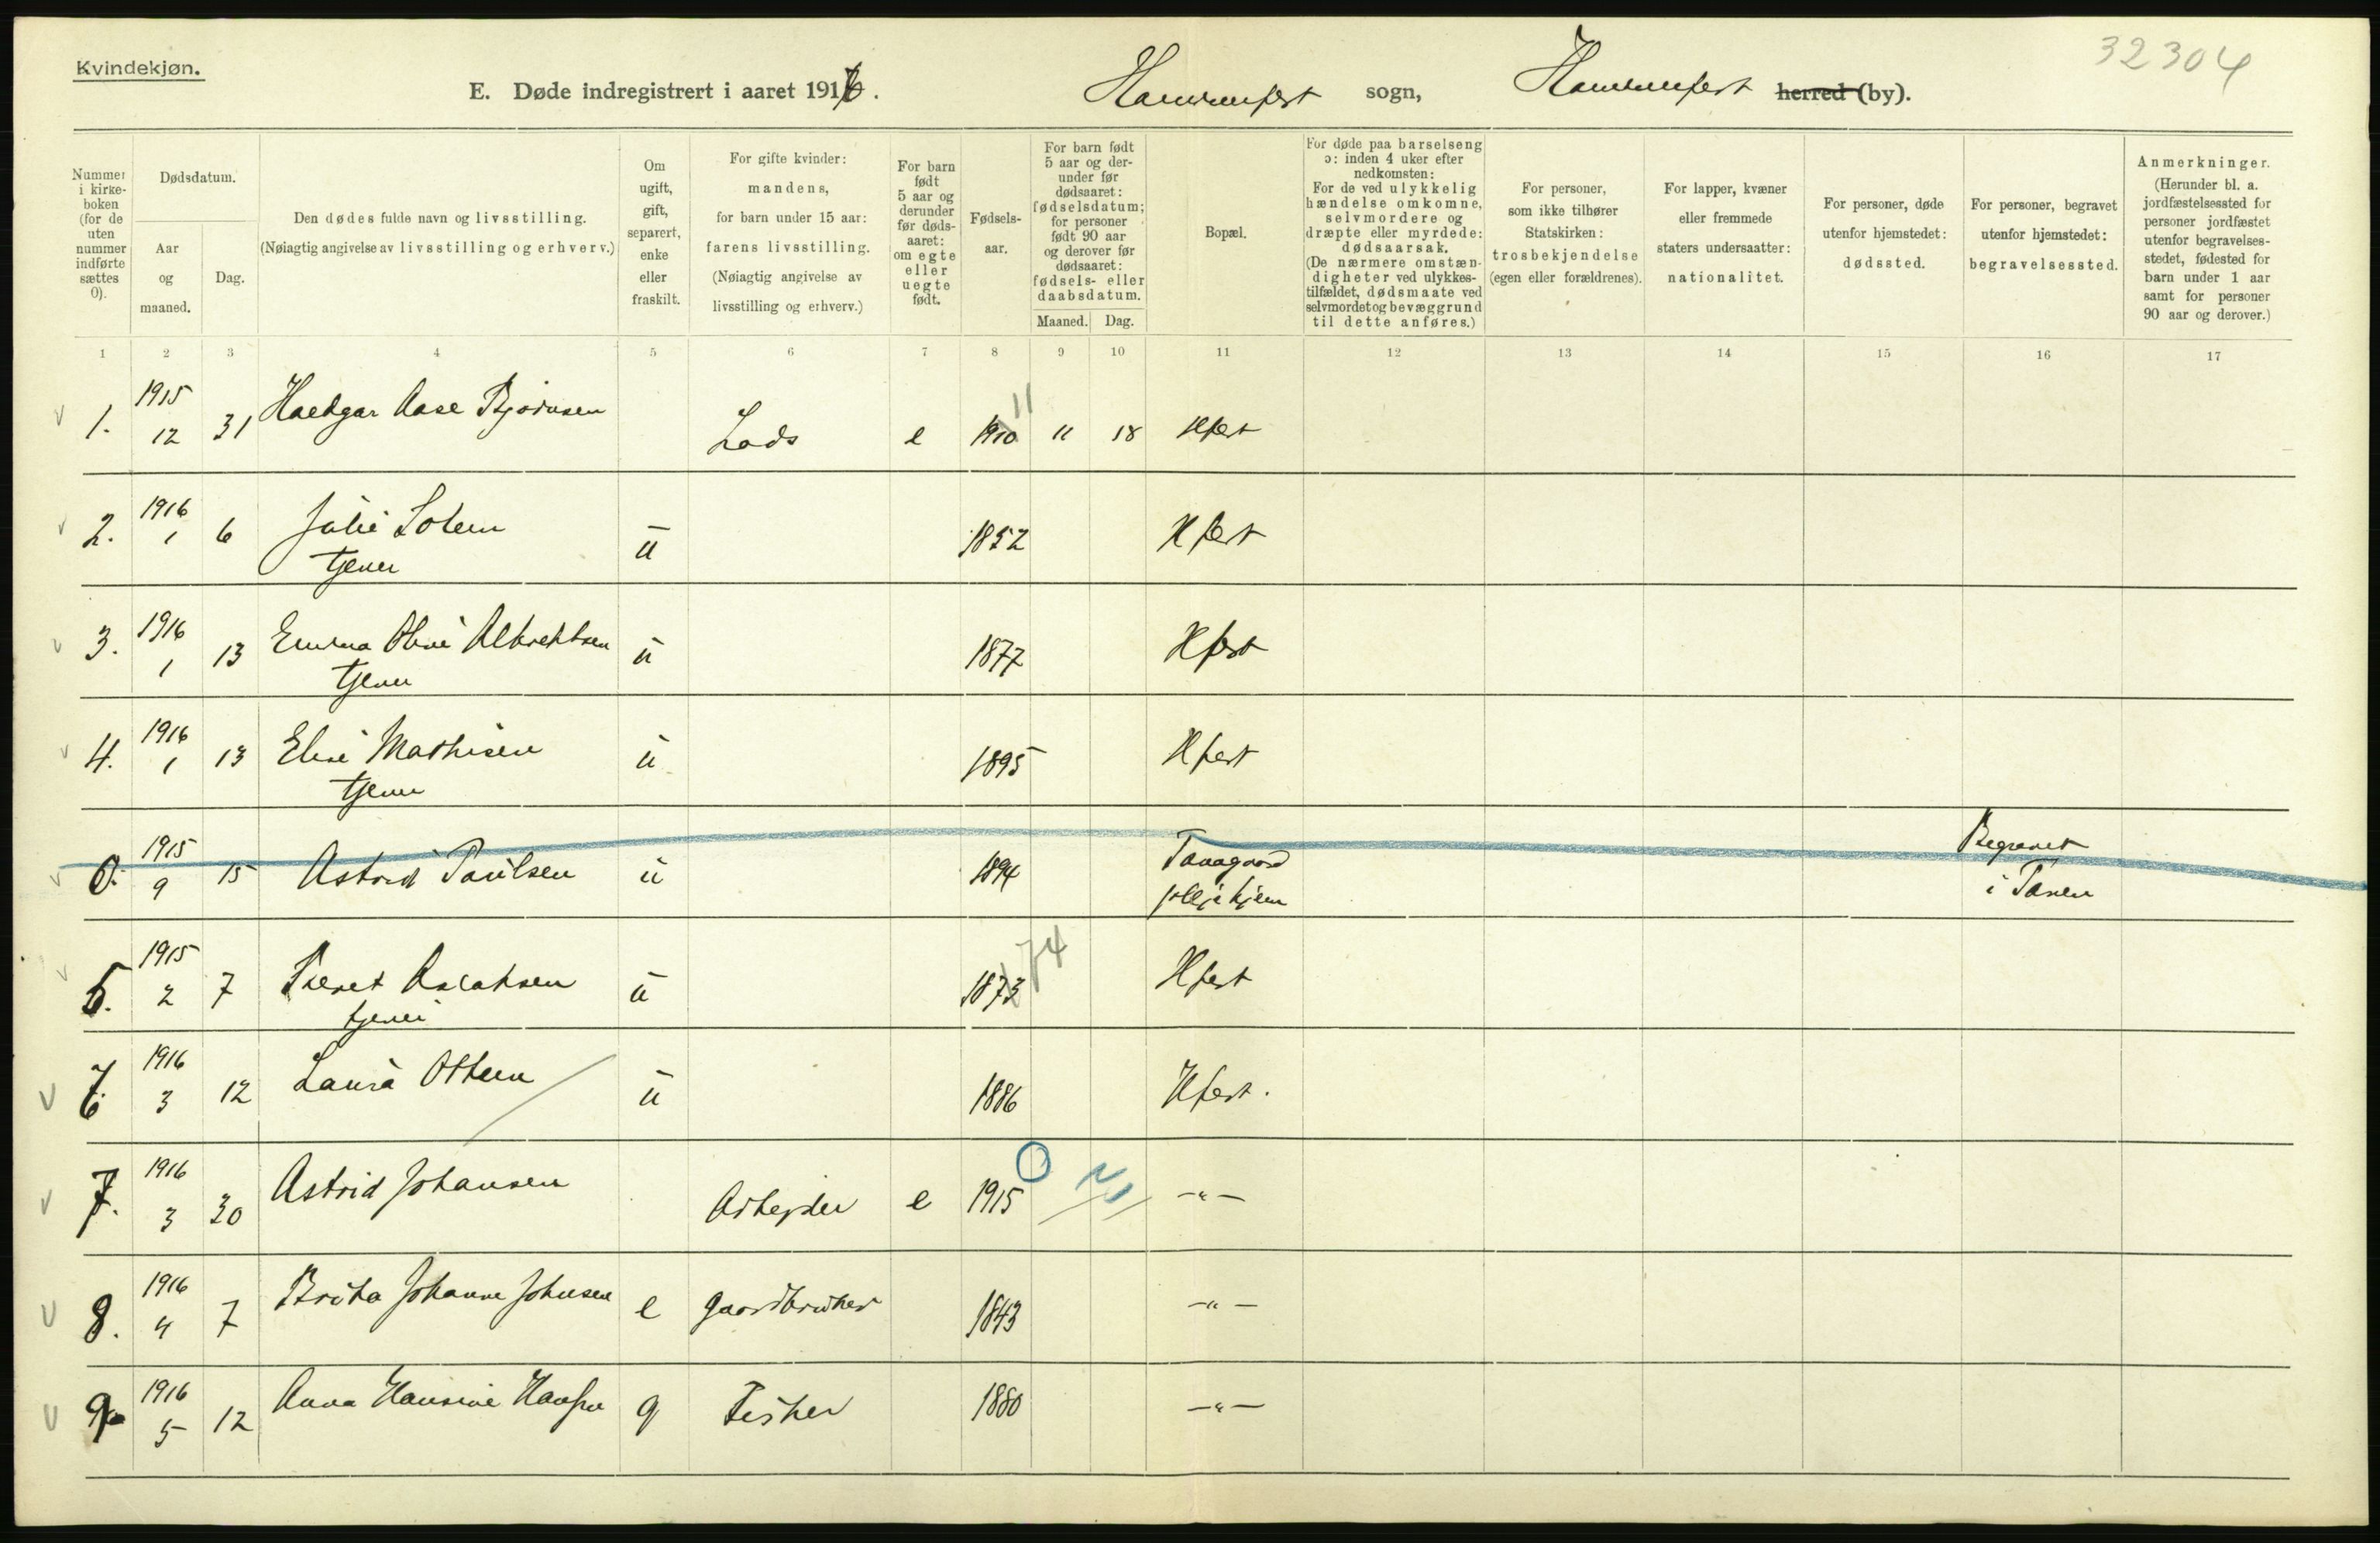 Kvindekjøn.
E. Døde indregistrert i aaret 1916.
Hammerfest sogn,
Hammerfest herred (by).
32304
Nummer i kirkeboken (for de uten nummer indførte sættes 0).
Dødsdatum.
Aar og maaned.
Dag.
Den dødes fulde navn og livsstilling.
(Nøiagtig angivelse av livsstilling og erhverv.)
Om ugift, gift, separert, enke eller fraskilt.
For gifte kvinder: mandens, for barn under 15 aar: farens livsstilling.
(Nøiagtig angivelse av livsstilling og erhverv.)
For barn født 5 aar og derunder før dødsaaret: om egte eller uegte født.
Fødselsaar.
For barn født 5 aar og derunder før dødsaaret: fødselsdatum; for personer født 90 aar og derover før dødsaaret: fødsels- eller daabsdatum.
Maaned. Dag.
Bopæl.
For døde paa barselseng ɔ: inden 4 uker efter nedkomsten:
For de ved ulykkelig hændelse omkomne, selvmordere og dræpte eller myrdede: dødsaarsak.
(De nærmere omstændigheter ved ulykkestilfældet, dødsmaate ved selvmordet og bevæggrund til dette anføres.)
For personer, som ikke tilhører Statskirken: trosbekjendelse (egen eller forældrenes).
For lapper, kvæner eller fremmede staters undersaatter: nationalitet.
For personer, døde utenfor hjemstedet: dødssted.
For personer, begravet utenfor hjemstedet: begravelsessted.
Anmerkninger.
(Herunder bl. a. jordfæstelsessted for personer jordfæstet utenfor begravelsesstedet, fødested for barn under 1 aar samt for personer 90 aar og derover.)
1 2 3 4 5 6 7 8 9 10 11 12 13 14 15 16 17
1. 1915 12 31 Aase Bjørnsen e 1910 11 11 18 Hfest
2. 1916 1 6 Julie Solem u 1852 Hfest
tjener
3. 1916 1 13 Emma Olive Albrektsen u 1877 Hfest
tjener
4. 1916 1 13 Elise Mathisen u 1895 Hfest
tjener
0. 1915 9 15 Astrid Paulsen u 1894 Tanagaard Begravet
pleje hjem i Tanen
5. 1915 2 7 Beret Aslaksen u 1873 74 Hfest
tjener
6. 1916 3 12 Laura Olsen u 1886 Hfest.
7. 1916 3 30 Astrid Johansen Arbejder e 1915 0 -"-
8. 1916 4 7 Brita Johanne Johnsen e gaardbruker 1843 -"-
9. 1916 5 12 Anna Hansine Hansen g Fisker 1880 -"-